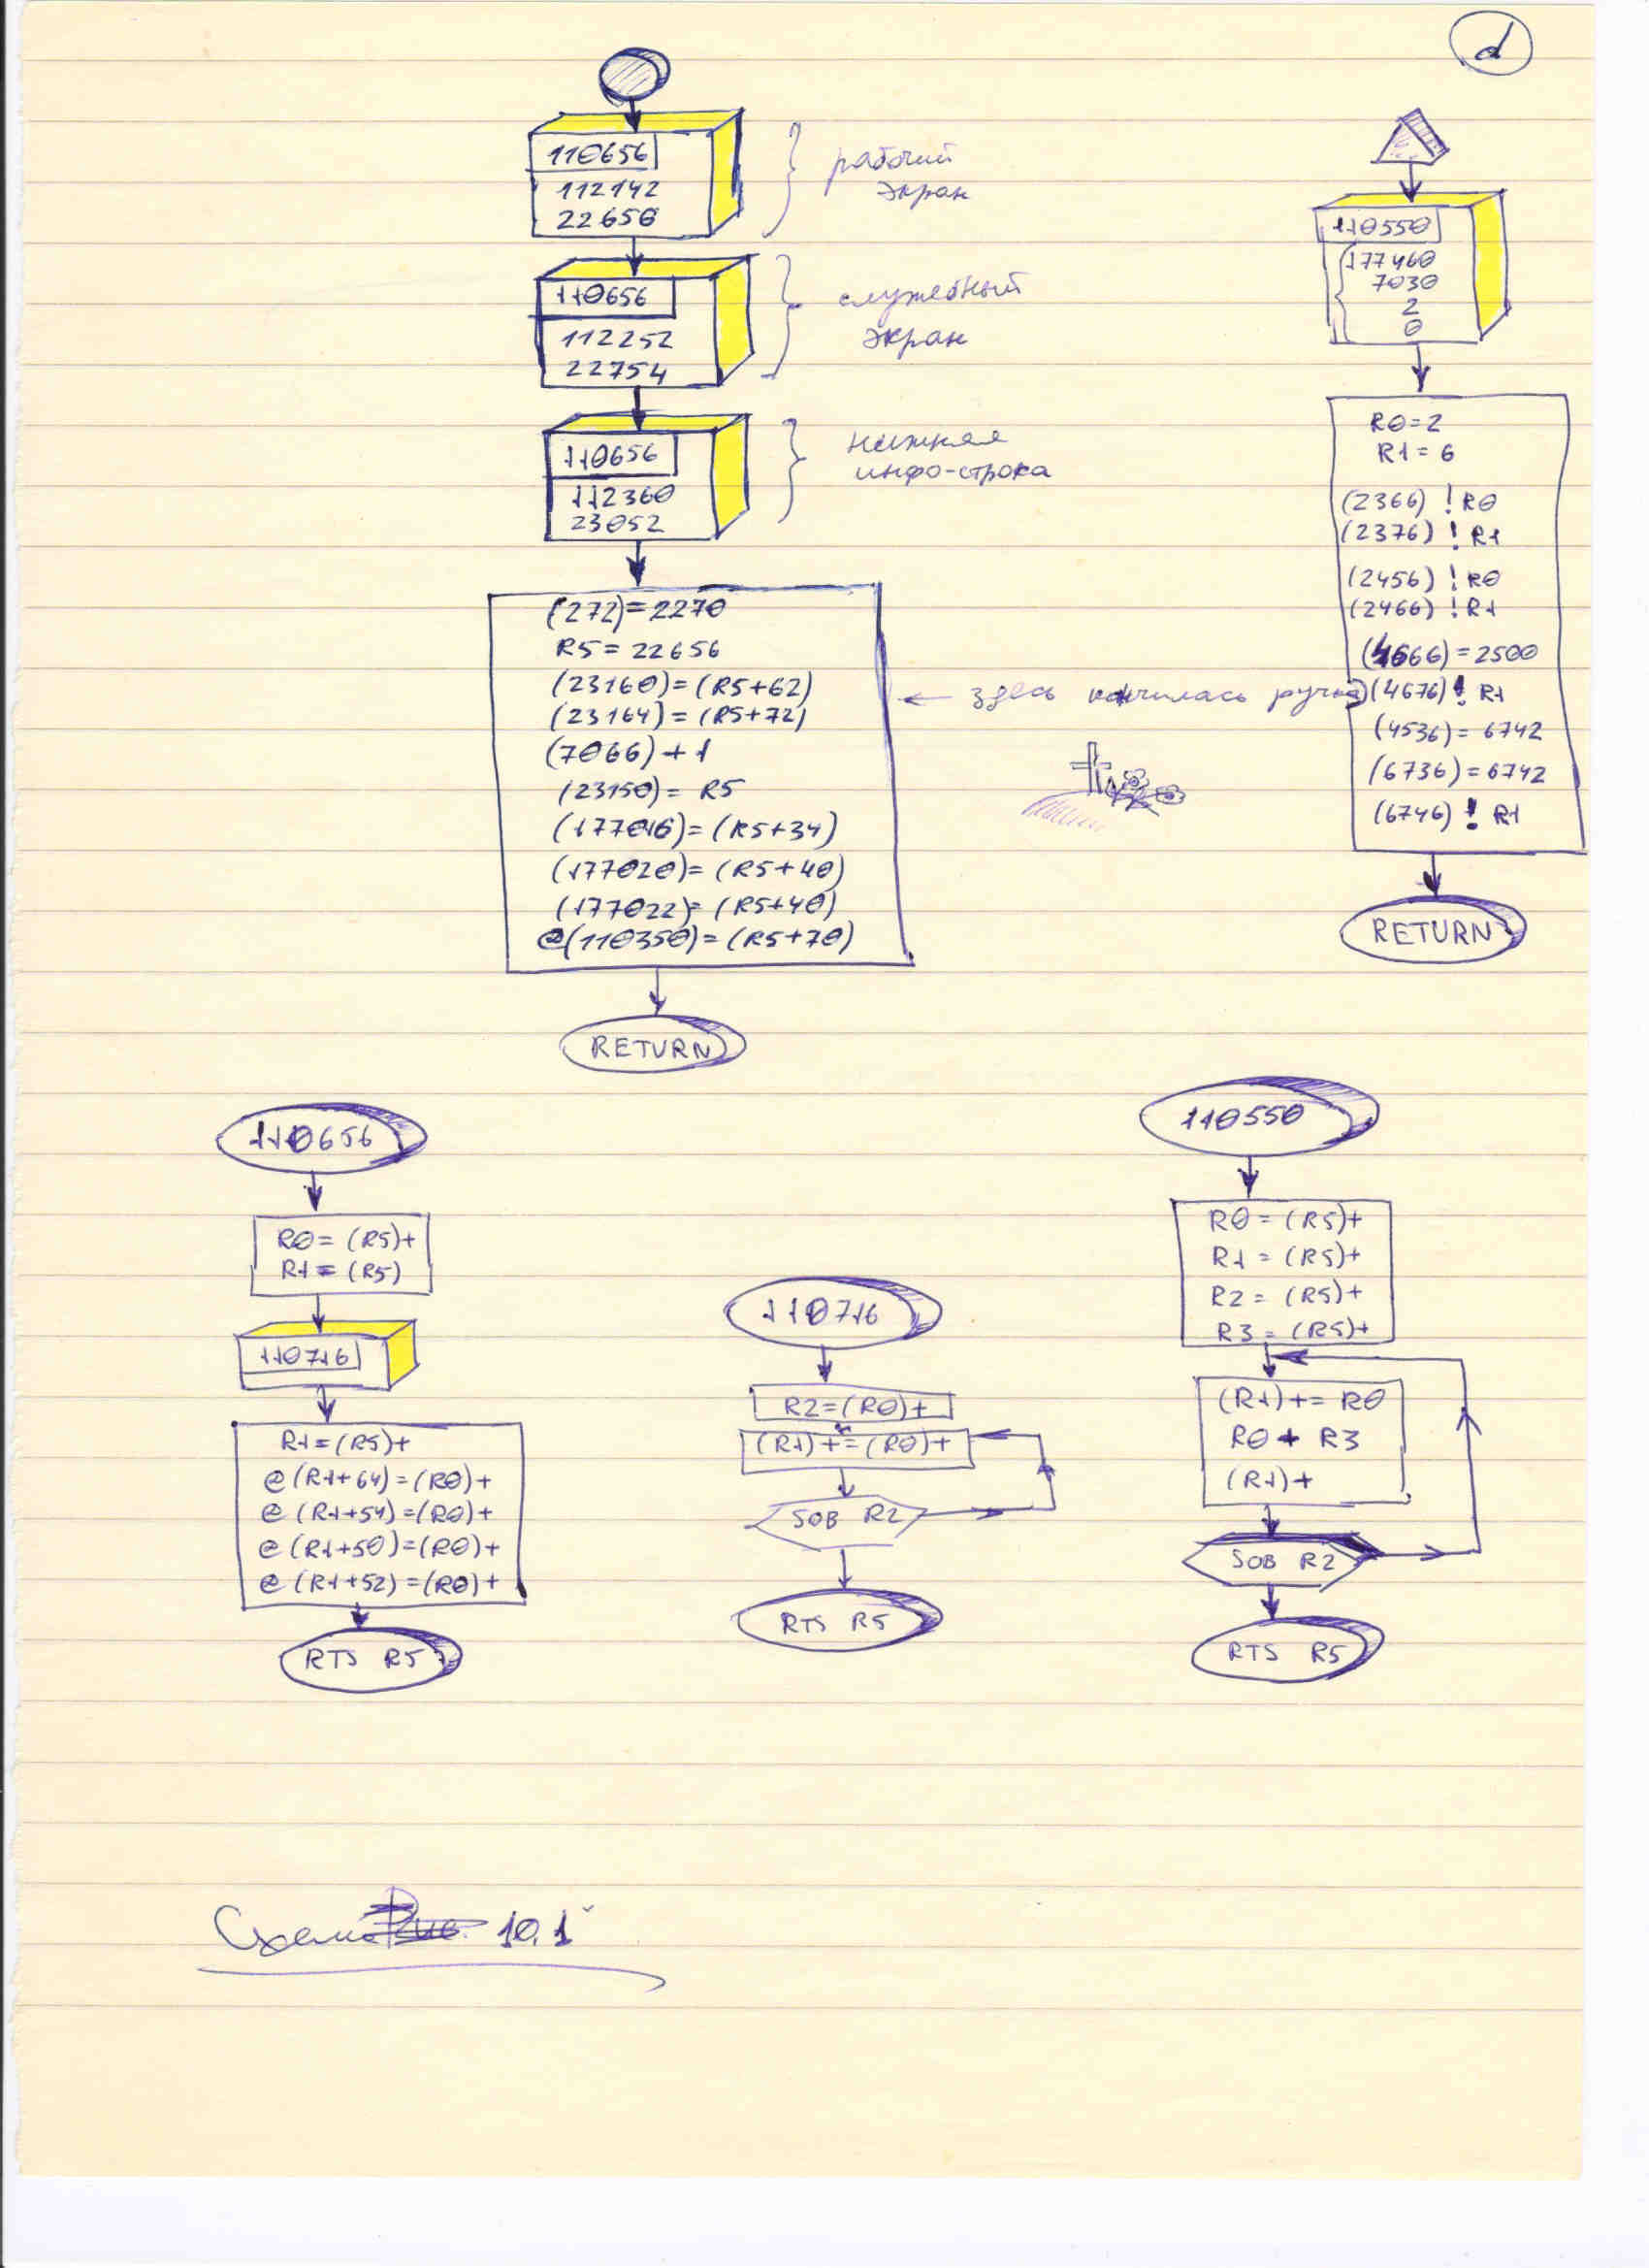 d
110656
112142
22656
рабочий
экран
110656
112252
22754
служебный
экран
110656
112360
23052
нижняя
инфо-строка
(272)=2270
R5=22656
(23160)=(R5+62)
(23164)=(R5+72)
(7066)+1
(23150)=R5
(177016)=(R5+34)
(177020)=(R5+40)
(177022)=(R5+40)
@(110350)=(R5+70)
RETURN
← здесь кончилась ручка
110550
177460
7030
2
0
R0=2
R1=6
(2366)!R0
(2376)!R1
(2456)!R0
(2466)!R1
(4666)=2500
(4676)!R1
(4536)=6742
(6736)=6742
(6746)!R1
RETURN
110656
R0=(R5)+
R1=(R5)
110716
R1=(R5)+
@(R1+64)=(R0)+
@(R1+54)=(R0)+
@(R1+50)=(R0)+
@(R1+52)=(R0)+
RTS R5
110716
R2=(R0)+
(R1)+=(R0)+
SOB R2
RTS R5
110550
R0=(R5)+
R1=(R5)+
R2=(R5)+
R3=(R5)+
(R1)+=R0
R0+R3
(R1)+
SOB R2
RTS R5
Схема 10.1